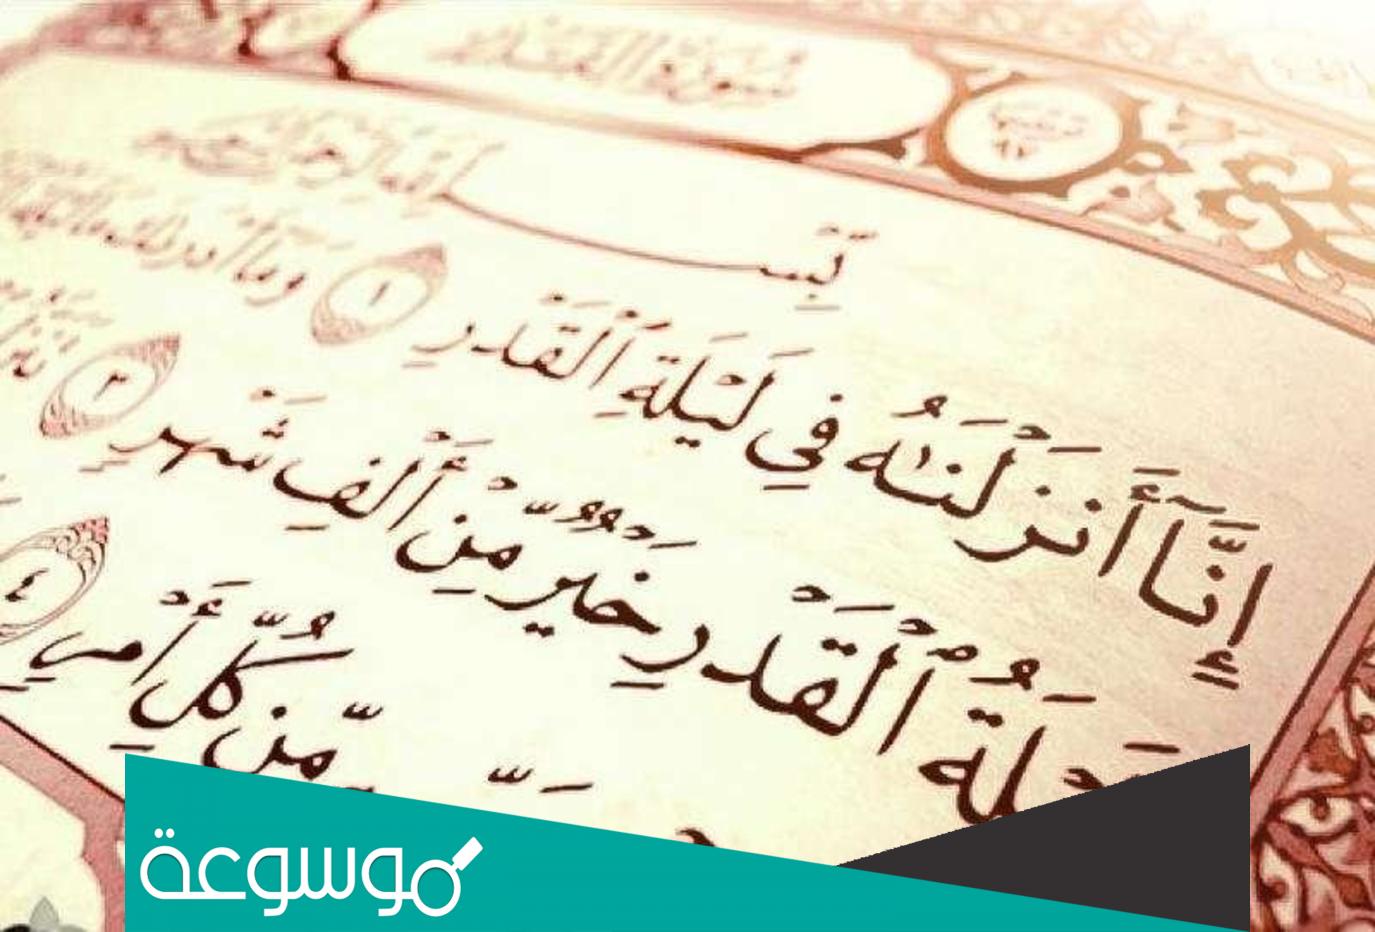 سُورَةُ القَدْرِ
بِّسْمِ ٱللَّهِ ٱلرَّحْمَٰنِ ٱلرَّحِيمِ
إِنَّآ أَنزَلْنَٰهُ فِي لَيْلَةِ ٱلْقَدْرِ ١ وَمَآ أَدْرَىٰكَ مَا لَيْلَةُ
لَيْلَةُ ٱلْقَدْرِ خَيْرٌ مِّنْ أَلْفِ شَهْرٍ ٣
مِّن كُلِّ أَمْرٍ ٤
موسوعة